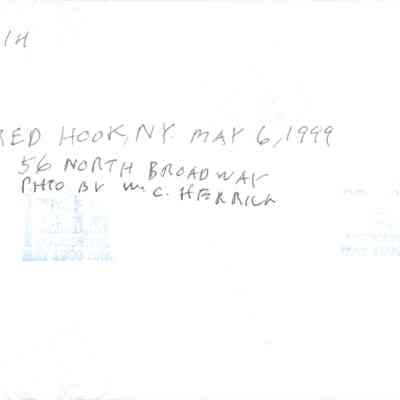 RED HOOK, NY. MAY 6, 1999
56 NORTH BROADWAY
PHTO BY W. C. HERRICK
MAY 1999